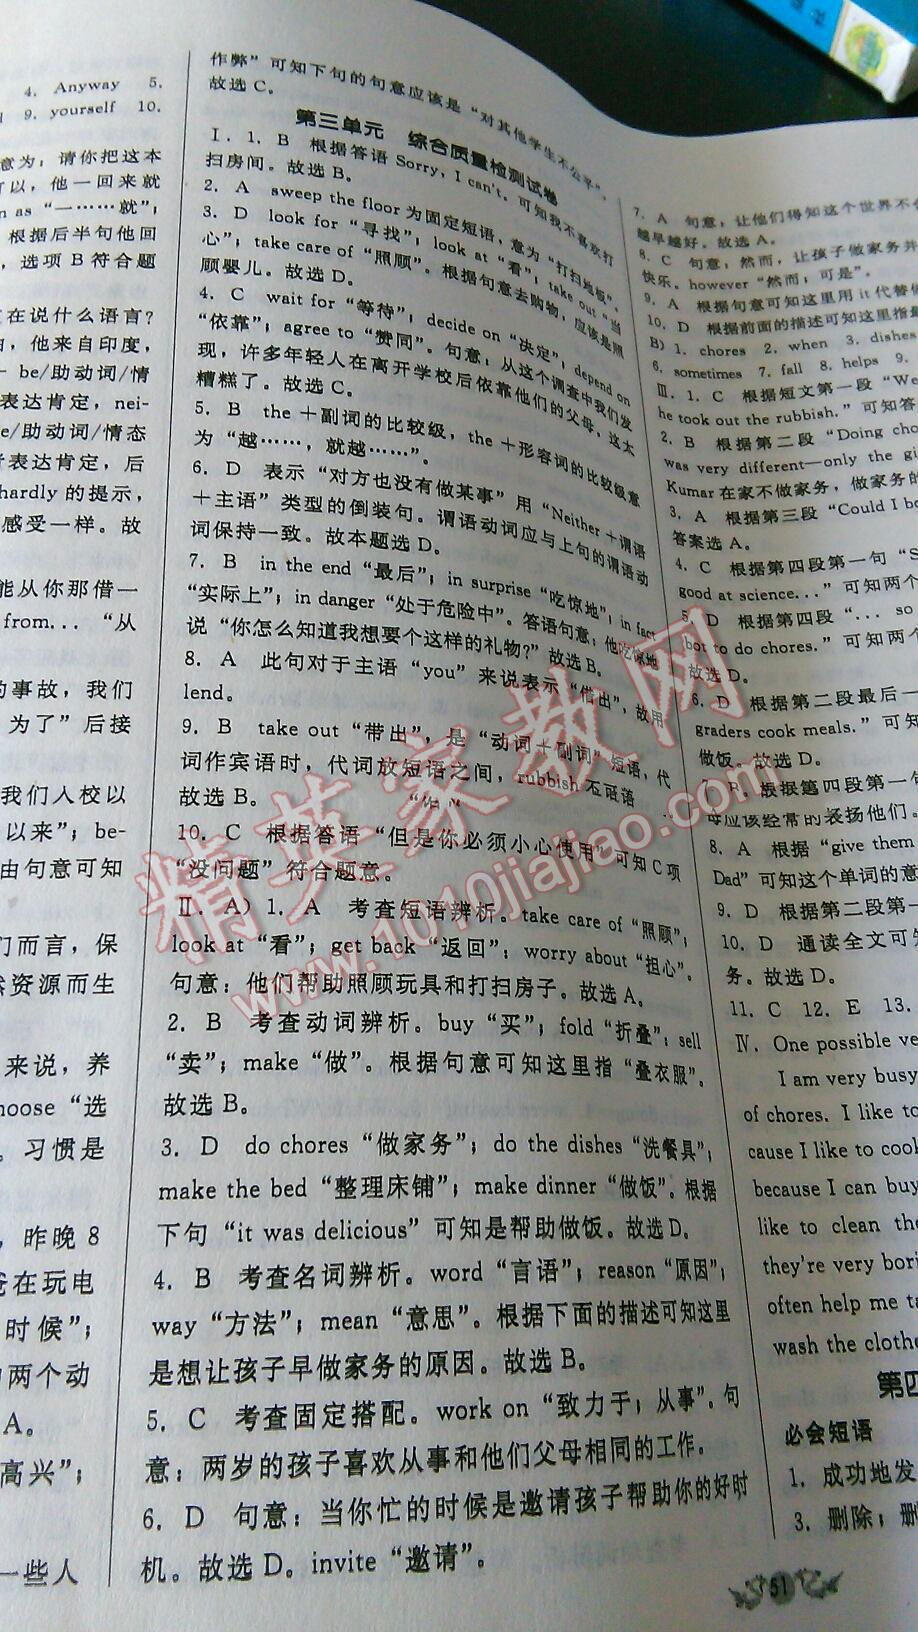 4. Anyway 5.
9. yourself 10.
意为：请你把这本
可以，他一回来就
as “一……就”；
根据后半句他回
，选项 B 符合题
在说什么语言？
，他来自印度，
be/助动词/情
表达肯定，nei-
be/助动词/情态
表达肯定，后
hardly 的提示，
感受一样。故
能从你那借一
from... “从
的事故，我们
为了”后接
我们入校以
以来”；be-
由句意可知
们而言，保
然资源而生
来说，养
choose “选
。习惯是
，昨晚 8
爸在玩电
时候”；
两个动
A。
高兴”；
一些人
作弊”可知下句的句意应该是“对其他学生不公平”，
故选 C。
第三单元 综合质量检测试卷
Ⅰ. 1. B 根据答语 Sorry, I can't. 可知我不喜欢打
扫房间。故选 B。
2. A sweep the floor 为固定短语，意为“打扫地板”。
3. D look for “寻找”；look at “看”；take out “当
心”；take care of “照顾”。根据句意去购物，应该是照
顾婴儿。故选 D。
4. C wait for “等待”；decide on “决定”；depend on
“依靠”；agree to “赞同”。句意：从这个调查中我们发
现，许多年轻人在离开学校后依靠他们的父母，这太
糟糕了。故选 C。
5. B the＋副词的比较级，the＋形容词的比较级意
为“越……，就越……”。
6. D 表示“对方也没有做某事”用“Neither＋谓语
＋主语”类型的倒装句。谓语动词应与上句的谓语动
词保持一致。故本题选 D。
7. B in the end “最后”；in surprise “吃惊地”；in fact
“实际上”；in danger “处于危险中”。答语句意：他吃惊地
说“你怎么知道我想要个这样的礼物？”故选 B。
8. A 此句对于主语“you”来说表示“借出”，故用
lend。
9. B take out “带出”，是“动词＋副词”短语，代
词作宾语时，代词放短语之间，rubbish
故选 B。
10. C 根据答语“但是你必须小心使用”可知 C 项
“没问题”符合题意。
Ⅱ. A) 1. A 考查短语辨析。take care of “照顾”；
look at “看”；get back “返回”；worry about “担心”。
句意：他们帮助照顾玩具和打扫房子。故选 A。
2. B 考查动词辨析。buy “买”；fold “折叠”；sell
“卖”；make “做”。根据句意可知这里指“叠衣服”。
故选 B。
3. D do chores “做家务”；do the dishes “洗餐具”；
make the bed “整理床铺”；make dinner “做饭”。根据
下句“it was delicious”可知是帮助做饭。故选 D。
4. B 考查名词辨析。word “言语”；reason “原因”；
way “方法”；mean “意思”。根据下面的描述可知这里
是想让孩子早做家务的原因。故选 B。
5. C 考查固定搭配。work on “致力于；从事”。句
意：两岁的孩子喜欢从事和他们父母相同的工作。
6. D 句意：当你忙的时候是邀请孩子帮助你的好时
机。故选 D。invite “邀请”。
7. A 句意，让他们得知这个世界不
越早越好。故选 A。
8. C 句意：然而，让孩子做家务并
快乐。however “然而；可是”。
9. A 根据句意可知这里用 it 代替
10. D 根据前面的描述可知这里指
B) 1. chores 2. when 3. dishes
6. sometimes 7. fall 8. helps 9.
Ⅲ. 1. C 根据短文第一段 “We
he took out the rubbish.” 可知答
2. B 根据第二段 “Doing cho
was very different—only the gi
Kumar 在家不做家务，做家务的
3. A 根据第三段 “Could I b
答案选 A。
4. C 根据第四段第一句 “S
good at science...” 可知两个
5. D 根据第四段 “... so
bot to do chores.” 可知两个
故选 D。
6. D 根据第二段最后一
graders cook meals.” 可知
做饭。故选 D。
7. B. 根据第四段第一句
母应该经常的表扬他们。
8. A 根据 “give them
Dad” 可知这个单词的意
9. D 根据第二段第一
10. D 通读全文可知
务。故选 D。
11. C 12. E 13.
Ⅳ. One possible ve
I am very busy
of chores. I like to
cause I like to cook
because I can buy
like to clean the
they're very bori
often help me ta
wash the clothe
第四
必会短语
1. 成功地发
3. 删除；删
51
精英家教网
www.1010jiajiao.com